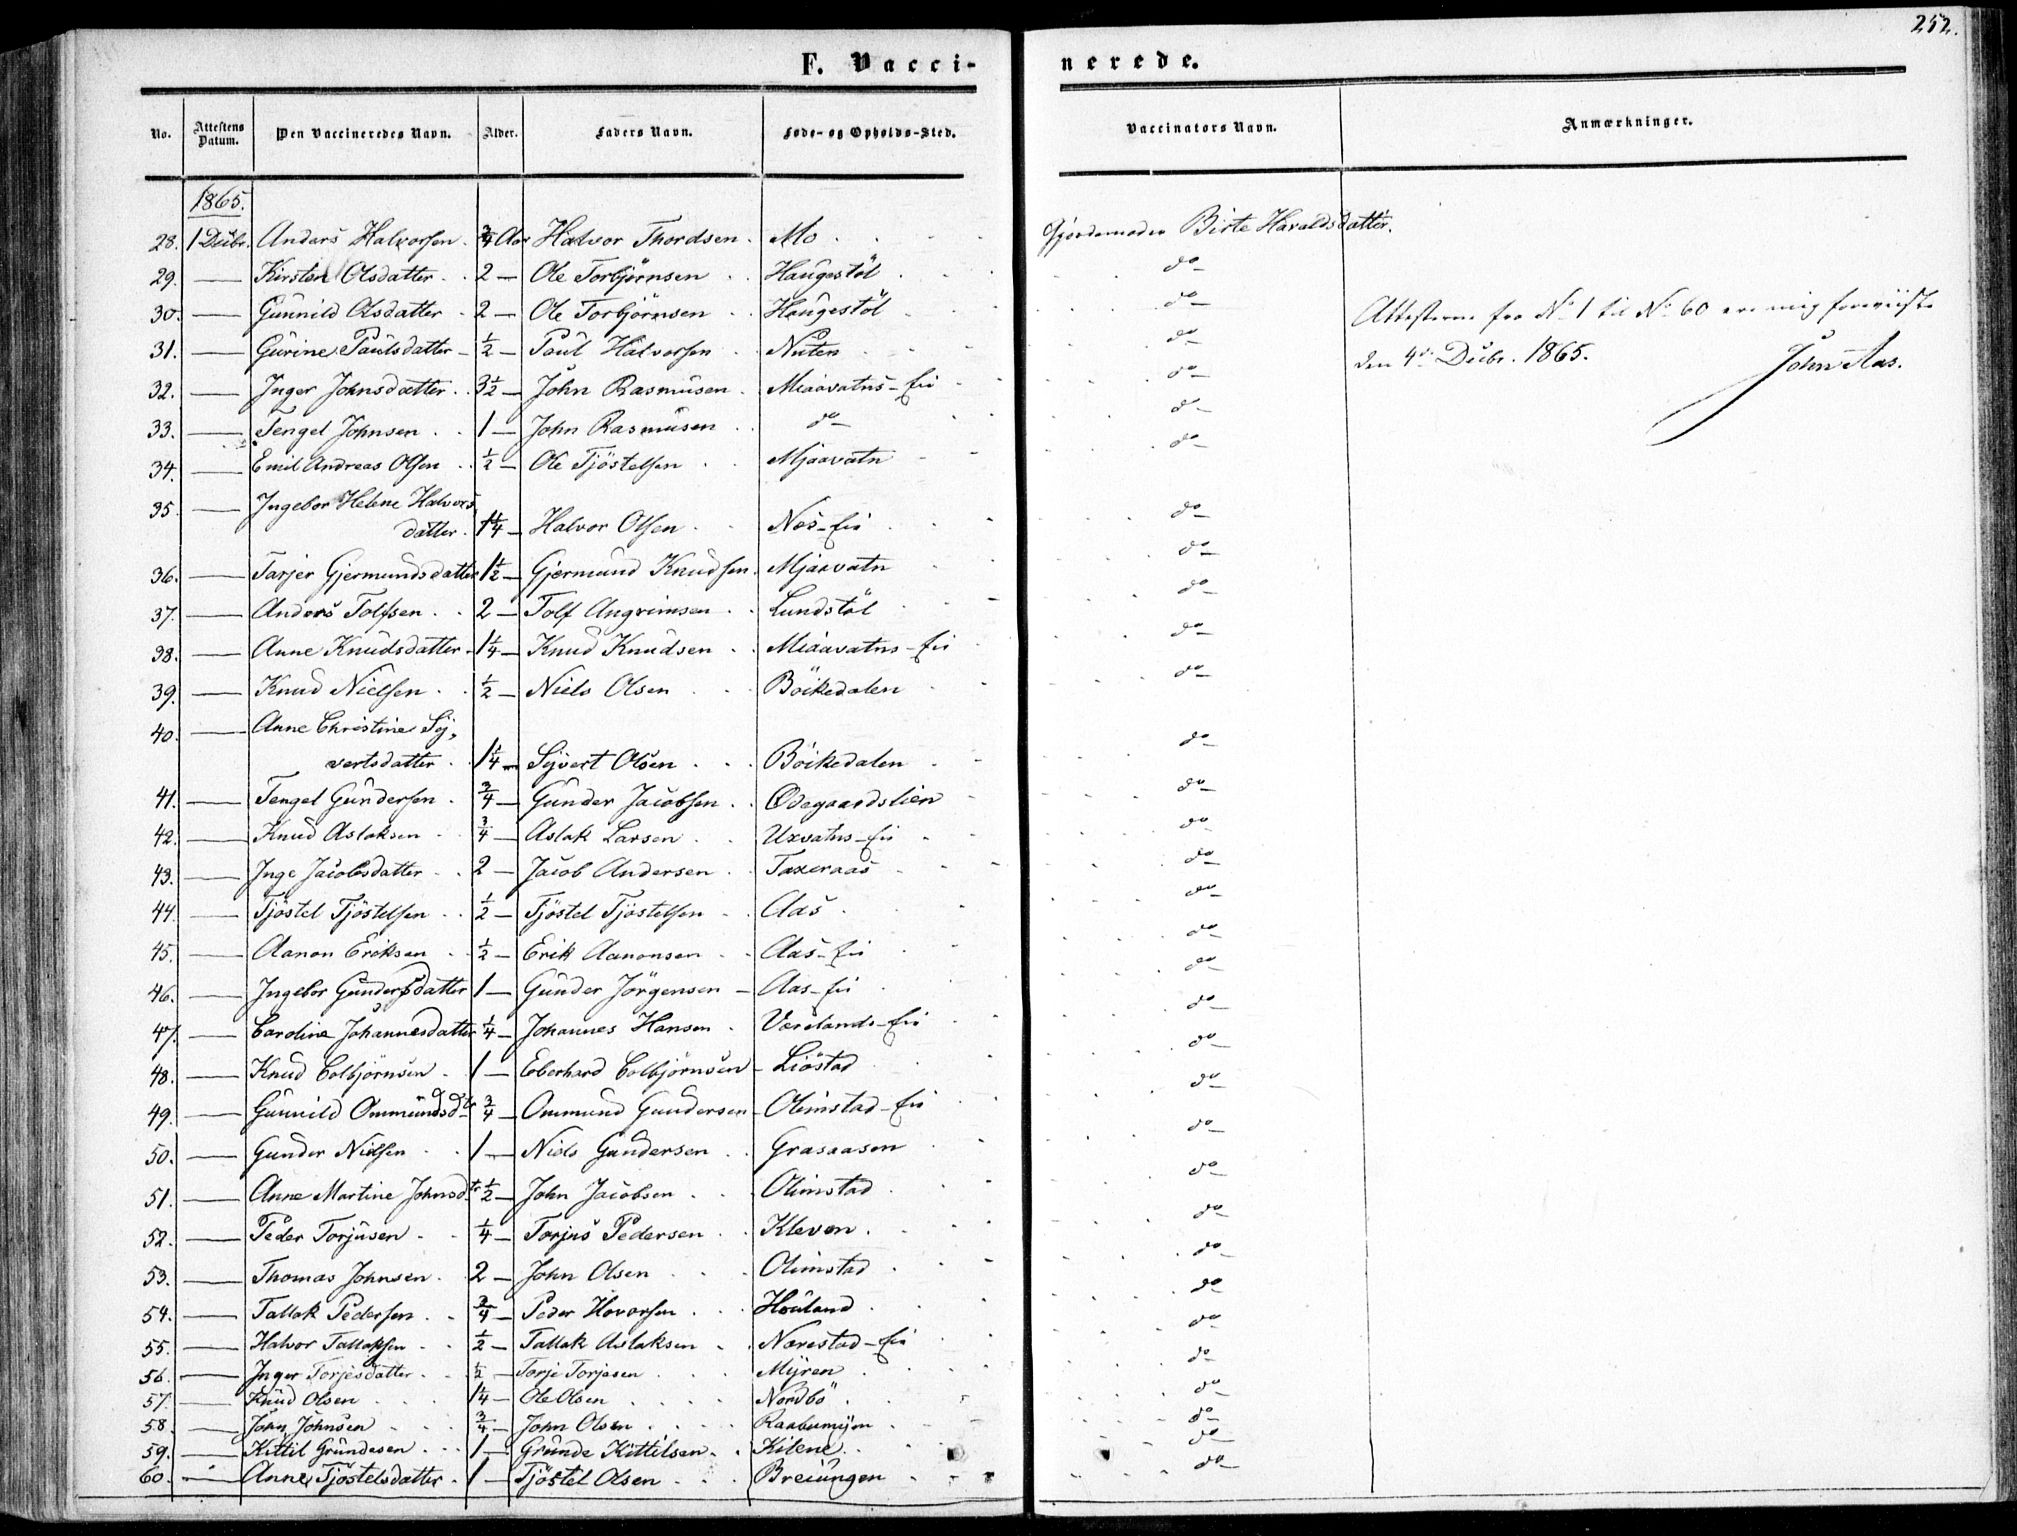 252.
F. Vacci-
nerede.
No. Attestens Datum. Den Vaccineredes Navn. Alder. Faders Navn. Føde- og Opholds-Sted. Vaccinators Navn. Anmærkninger.
1865.
28. 1 Decbr. Anders Halvorsen ¾ Aar Halvor Thordsen Mo Gjordemoder Birte Haraldsdatter.
29. — Kirsten Olsdatter 2 — Ole Torbjörnsen Haugestöl do
30. — Gunnild Olsdatter 2 — Ole Torbjörnsen Haugestöl do
31. — Gurine Paulsdatter ½ — Paul Halvorsen Nuten do
32. — Inger Johnsdatter 3½ — John Rasmusen Miaavatns-Ei do
33. — Tengel Johnsen 1 — John Rasmusen do do
34. — Emil Andreas Olsen ½ — Ole Tjöstelsen Mjaavatn do
35. — Ingebor Helene Halvors
datter 1¼ — Halvor Olsen Næs-Ei do
36. — Tarjer Gjermundsdatter 1½ — Gjermund Knudsen Mjaavatn do
37. — Anders Tolfsen 2 — Tolf Angrimsen Lundstöl do
38. — Anne Knudsdatter 1¼ — Knud Knudsen Miaavatns-Ei do
39. — Knud Nielsen ½ — Niels Olsen Böikedalen do
40. — Anne Christine Sy-
vertsdatter 1¼ — Syvert Olsen Böikedalen do
41. — Tengel Gundersen ¾ — Gunder Jacobsen Ødegaardslien do
42. — Knud Aslaksen ¾ — Aslak Larsen Uxvatns-Ei do
43. — Inge Jacobsdatter 2 — Jacob Andersen Taxeraas do
44. — Tjöstel Tjöstelsen ½ — Tjöstel Tjöstelsen Aas do
45. — Aanon Eriksen ½ — Erik Aanonsen Aas-Ei do
46. — Ingebor Gundersdatter 1 — Gunder Jörgensen Aas-Ei do
47. — Caroline Johannesdatter ¼ — Johannes Hansen Værelands-Ei do
48. — Knud Colbjörnsen 1 — Eberhard Colbjörnsen Liöstad do
49. — Gunnild Ommundsdtr ¾ — Ommund Gundersen Olimstad-Ei do
50. — Gunder Nielsen 1 — Niels Gundersen Grasaasen do
51. — Anne Martine Johnsdtr ½ — John Jacobsen Olimstad do
52. — Peder Torjusen ¼ — Torjus Pedersen Kleven do
53. — Thomas Johnsen 2 — John Olsen Olimstad do
54. — Tallak Pedersen ¾ — Peder Hovorsen Houland do
55. — Halvor Tallaksen ½ — Tallak Aslaksen Nærestad-Ei do
56. — Inger Torjesdatter ½ — Torje Torjesen Myren do
57. — Knud Olsen 1¼ — Ole Olsen Nordbö do
58. — John Johnsen ¾ — John Olsen Raabumyen do
59. — Kittil Grundesen 1 — Grunde Kittilsen Kilene do
60. — Anne Tjöstelsdatter 1 — Tjöstel Olsen Breiungen do
Attesterne fra No 1 til No 60 ere mig foreviiste
den 4de Decbr. 1865. John Aas.